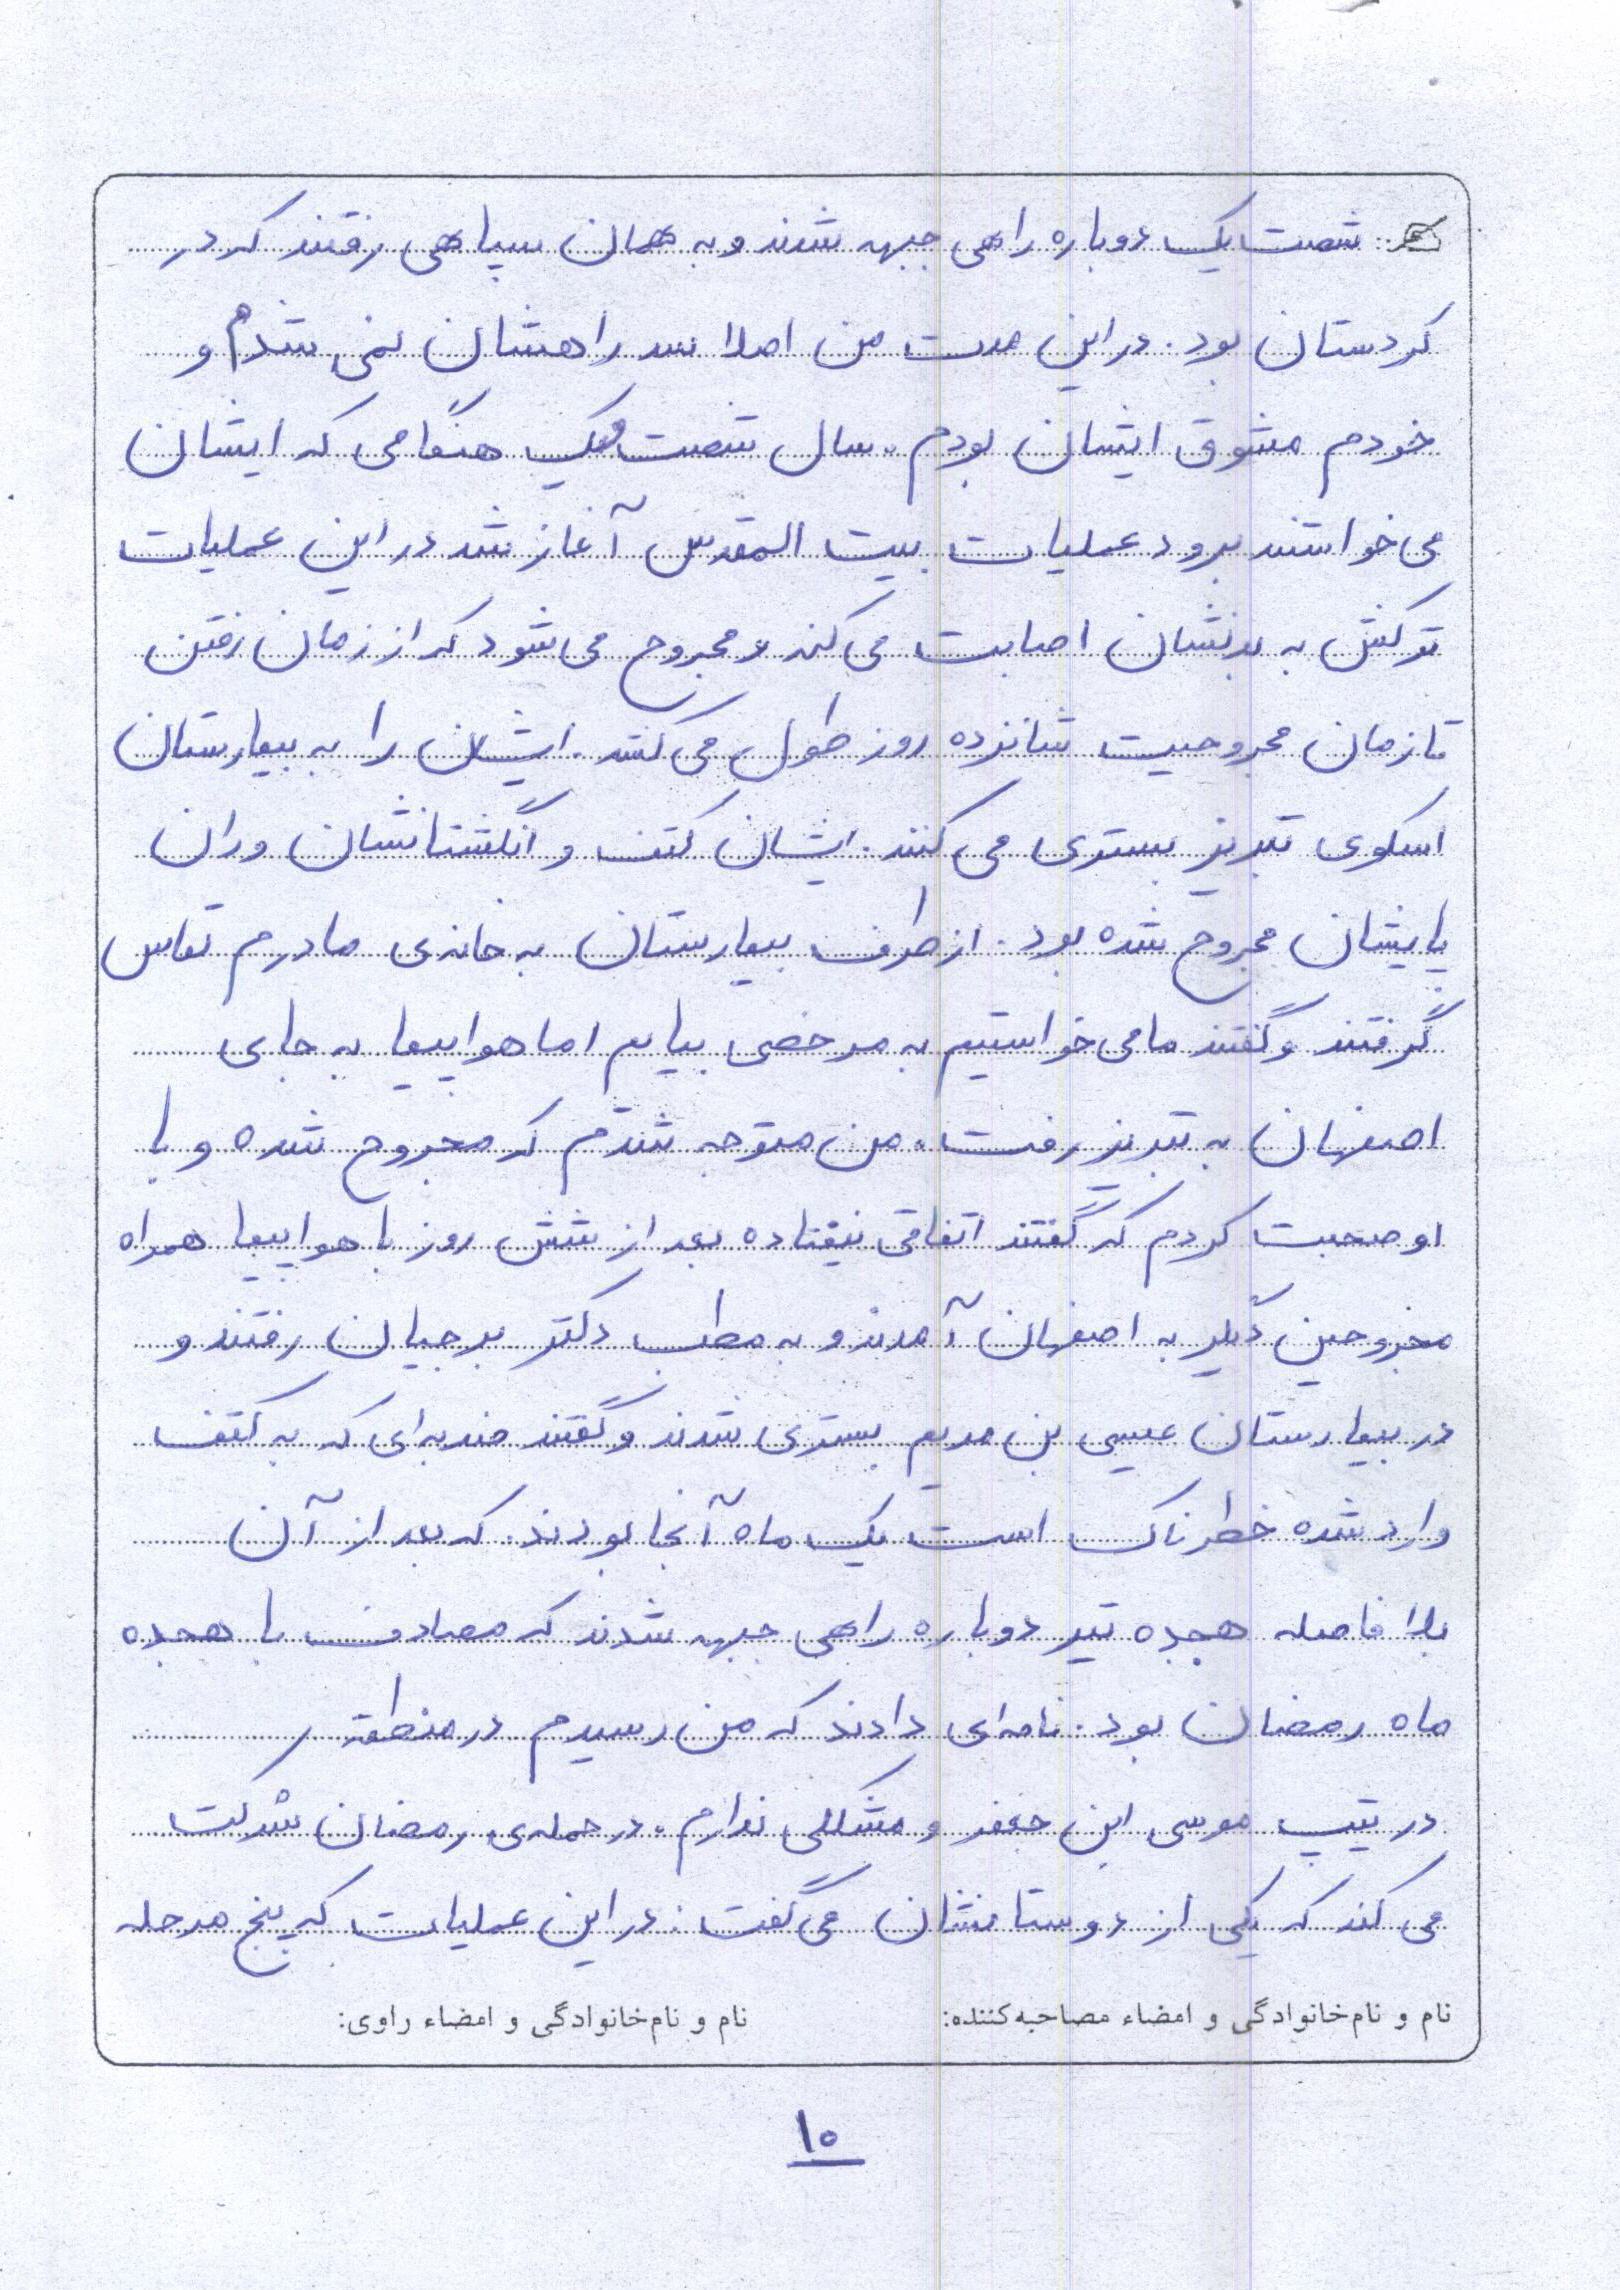 شصت یک دوباره راهی جبهه شدند و به همان سپاهی رفتند که در
کردستان بود. در این مدت من اصلا سد راهشان نمی شدم و
خودم مشوق ایشان بودم. سال شصت و یک هنگامی که ایشان
می خواستند برود عملیات بیت المقدس آغاز شد در این عملیات
ترکش به بدنشان اصابت می کند و مجروح می شود که از زمان رفتن
تا زمان مجروحیت شانزده روز طول می کشد. ایشان را به بیمارستان
اسکوی تبریز بستری می کنند. ایشان کتف و انگشتانشان و ران
پایشان مجروح شده بود. از طرف بیمارستان به خانه ی مادرم تماس
گرفتند و گفتند ما می خواستیم به مرخصی بیایم اما هواپیما به جای
اصفهان به تبریز رفت. من متوجه شدم که مجروح شده و با
او صحبت کردم که گفتند اتفاقی نیفتاده بعد از شش روز با هواپیما همراه
مجروحین دیگر به اصفهان آمدند و به مطب دکتر برجیان رفتند و
در بیمارستان عیسی بن مریم بستری شدند و گفتند ضربه ای که به کتف
وارد شده خطرناک است یک ماه آنجا بودند. که بعد از آن
بلا فاصله هجده تیر دوباره راهی جبهه شدند که مصادف با هجده
ماه رمضان بود. نامه ای دادند که من رسیدم در منطقه
در تیپ موسی ابن جعفر و مشکلی ندارم. در حمله ی رمضان شرکت
می کند که یکی از دوستانشان می گفت: در این عملیات که پنج مرحله
نام و نام‌خانوادگی و امضاء مصاحبه‌کننده: نام و نام‌خانوادگی و امضاء راوی:
۱۰